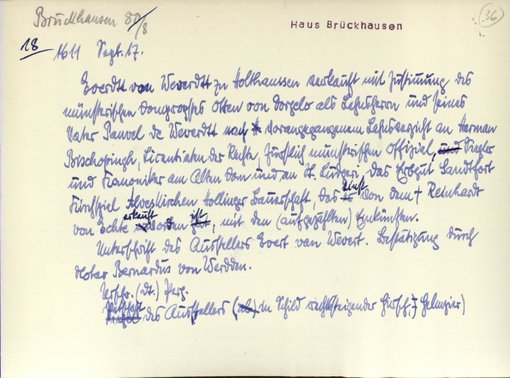 Brückhausen 80/8
Haus Brückhausen
(26)
18 1611 Sept. 17.
Everdt von Weverdt zu Holthaussen verkauft mit Zustimmung des
münsterischen Dompropstes Otten von Dorgelo als Lehnsherrn und seines
Vater Pauvel de Weverdt nach vorangegangenem Lehnsverzicht an Herman
Bischopingh, Licentiaten der Rechte, Fürstlich münsterischen Offizial, und Siegler
und Kanoniker am Alten Dom und an St. Ludgeri, das Erbgut Sandtfort
Kirchspiel Alverskirchen Bauerschaft, das einst von dem † Reinhardt
von Echte erkauft worden ist, mit den (aufgezählten) Einkünften.
Unterschrift des Ausstellers Evert van Wevert. Bestätigung durch
Notar Bernardus von Werden.
Urschr. (dt.) Perg.
des Ausstellers (ab) in Schild rechtssteigender Hirsch, Helmzier)